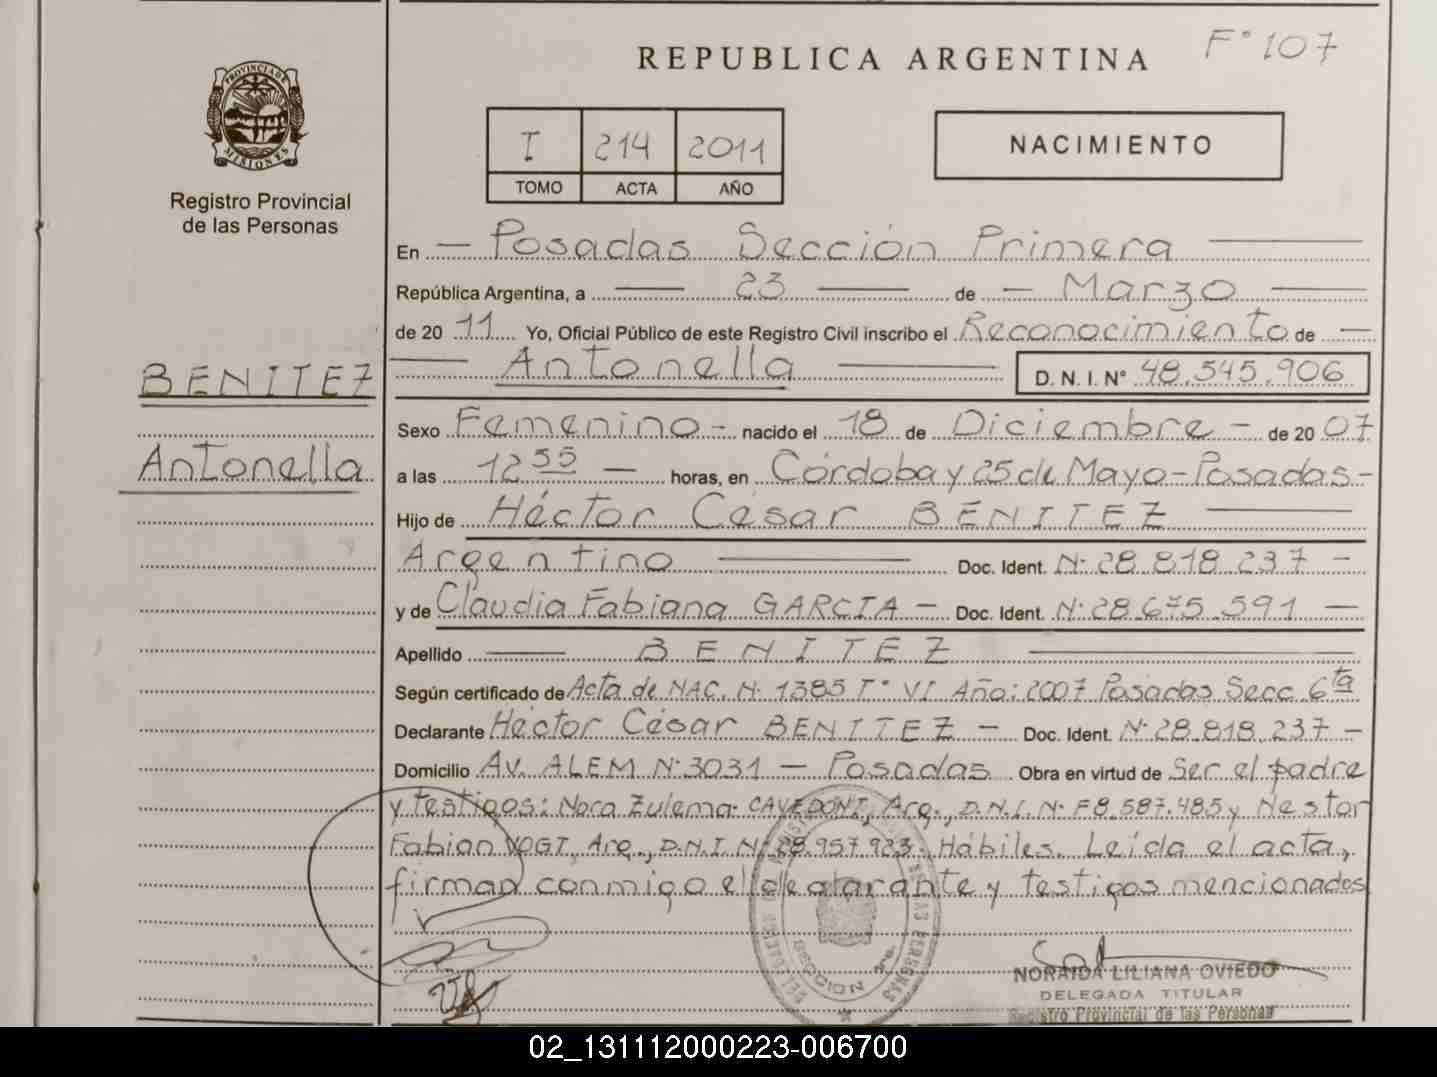 F° 107
REPUBLICA ARGENTINA
PROVINCIA DE
MISIONES
Registro Provincial
de las Personas
I 214 2011
TOMO ACTA AÑO
NACIMIENTO
En — Posadas Sección Primera —
República Argentina, a — 23 — de — Marzo —
de 20 11 Yo, Oficial Público de este Registro Civil inscribo el Reconocimiento de —
— Antonella — D. N. I. N° 48.545.906
BENITEZ
Antonella
Sexo Femenino - nacido el 18 de Diciembre - de 20 07
a las 12 55 — horas, en Córdoba y 25 de Mayo - Posadas -
Hijo de Héctor César BENITEZ —
Argentino — Doc. Ident. N° 28.818.237 —
y de Claudia Fabiana GARCIA — Doc. Ident. N° 28.675.591 —
Apellido — BENITEZ —
Según certificado de Acta de NAC. N° 1385 T° VI Año: 2007 Posadas Secc. 6ta
Declarante Héctor César BENITEZ — Doc. Ident. N° 28.818.237 —
Domicilio Av. ALEM N° 3031 — Posadas Obra en virtud de Ser el padre
y testigos: Nora Zulema CAVEDONI, Arg., D.N.I. N° F8.587.485 y Nestor
Fabian VOGT, Arg., D.N.I N° 28.957.923 Hábiles. Leída el acta,
firman conmigo el declarante y testigos mencionados
SECCION 1ra.
NORAIDA LILIANA OVIEDO
DELEGADA TITULAR
Registro Provincial de las Personas
02_131112000223-006700